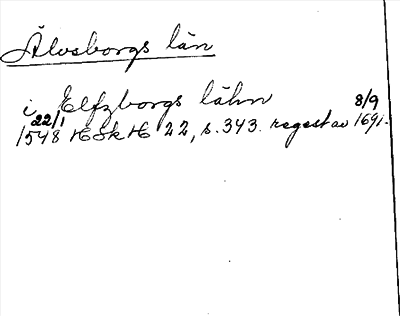 Älvsborgs län
i Elfzborgs lähn
22/1 1548 HSkH 22, s. 343. regest av 8/9 1691.